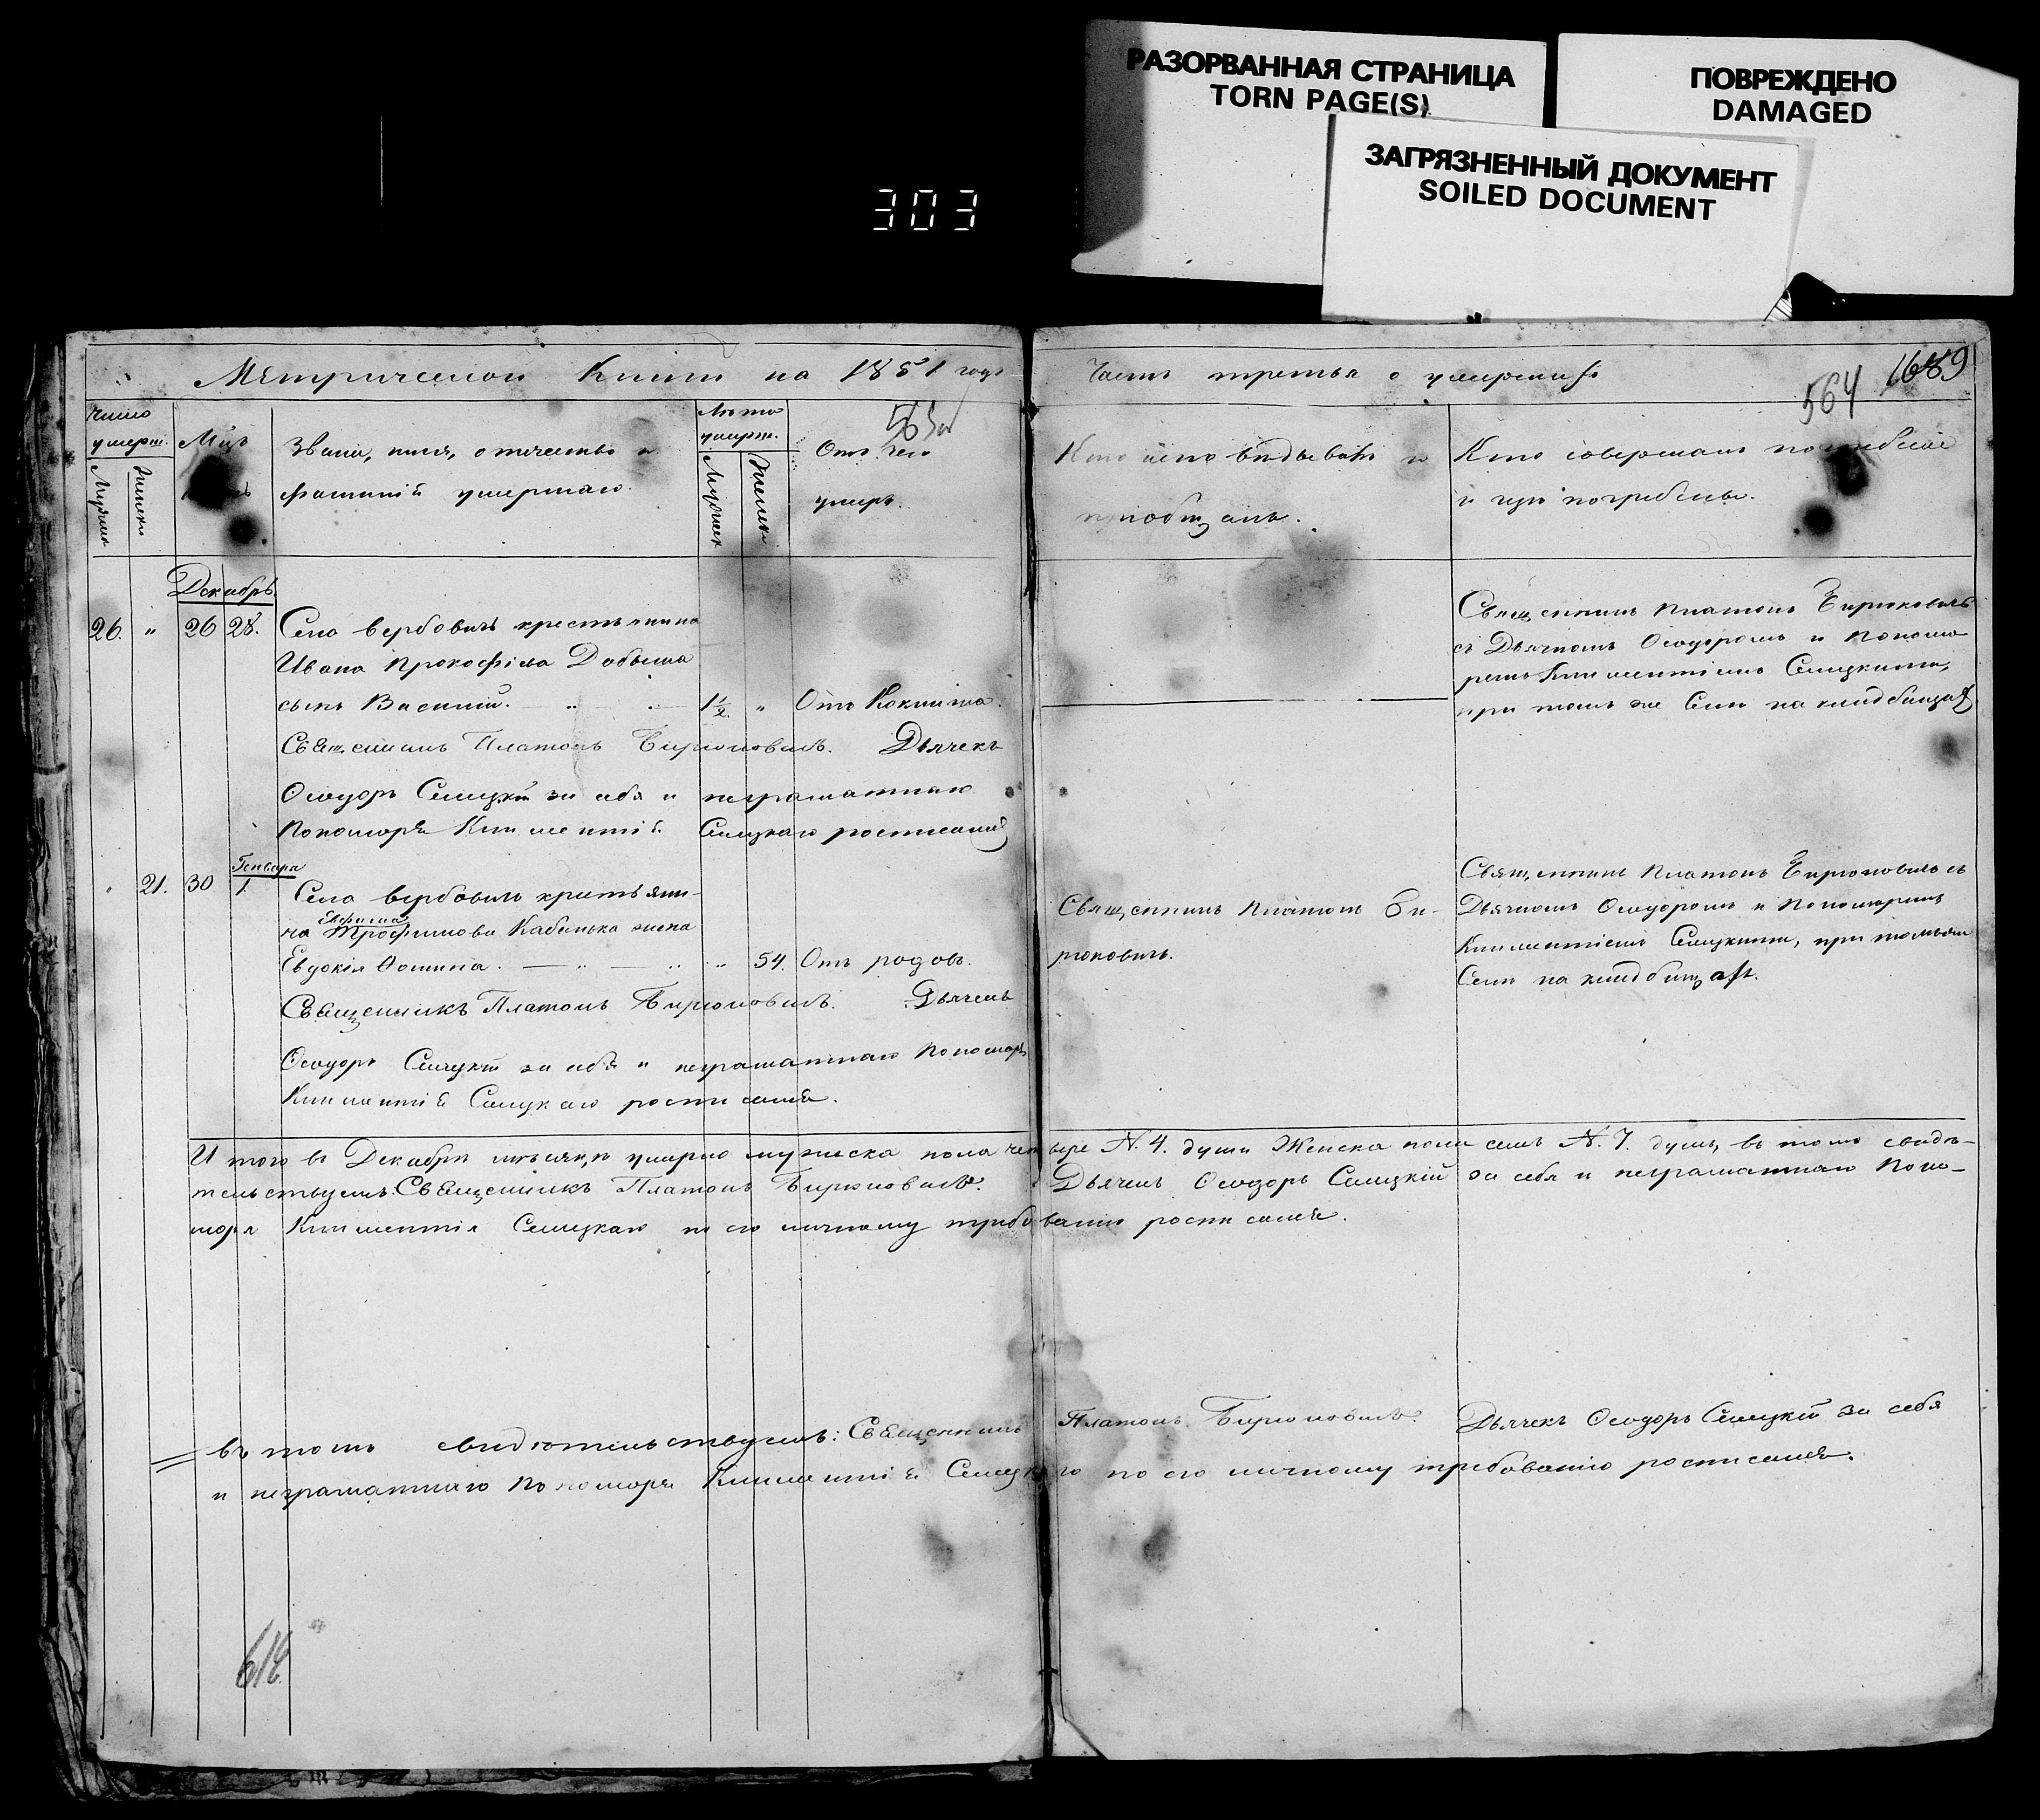 РАЗОРВАННАЯ СТРАНИЦА
TORN PAGE(S)
ПОВРЕЖДЕНО
DAMAGED
ЗАГРЯЗНЕННЫЙ ДОКУМЕНТ
SOILED DOCUMENT
303
Метрической Книги на 1851 годъ
Часть третья о умершихъ
564 1689
Число
умерш.
Мужеск
Женск
Мѣц
Званіе, имя, отчество и
фамилій умершаго.
Лѣта
умерш.
Мужеск
Женск
Отъ чего
умеръ.
Кто исповѣдывалъ и
пріобщалъ.
Кто совершалъ погребеніе
и гдѣ погребены.
Декабрь
26. " 26 28. Села Вербовичъ крестьянина
Ивана Прокофіева Добыша
сынъ Василій. 1½. " Отъ Коклюша.
Священникъ Платонъ Бирюковичъ
съ Дьячкомъ Ѳеодоромъ и Понома
ремъ Климентіемъ Сѣлицкими,
при томъ же Селѣ на кладбищѣ
Священникъ Платонъ Бирюковичъ. Дьячекъ
Ѳеодоръ Сѣлицкій за себя и неграматнаго
Пономаря Климентія Сѣлицкаго росписался
Генваря
" 21. 30 1. Села Вербовичъ крестьяни-
на Трофимова Кабанька жена
Евдокія Ѳомина. " 54. Отъ родовъ.
Священникъ Платонъ Би-
рюковичъ.
Священникъ Платонъ Бирюковичъ съ
Дьячкомъ Ѳеодоромъ и Пономаремъ
Климентіемъ Сѣлицкими, при томъже
Селѣ на кладбищахъ.
Священникъ Платонъ Бирюковичъ. Дьячекъ
Ѳеодоръ Сѣлицкій за себя и неграматнаго Пономаря
Климентія Сѣлицкаго росписался.
Итого въ Декабрѣ мѣсяцѣ умерло мужеска пола четыре N. 4. души Женска пола семь N. 7. душъ, въ томъ свидѣ-
тельствуемъ: Священникъ Платонъ Бирюковичъ. Дьячекъ Ѳеодоръ Сѣлицкій за себя и неграматнаго Поно-
маря Климентія Сѣлицкаго по его личному требованію росписался.
въ томъ свидѣтельствуемъ: Священникъ Платонъ Бирюковичъ. Дьячекъ Ѳеодоръ Сѣлицкій за себя
и неграматнаго Пономаря Климентія Сѣлицкаго по его личному требованію росписался.